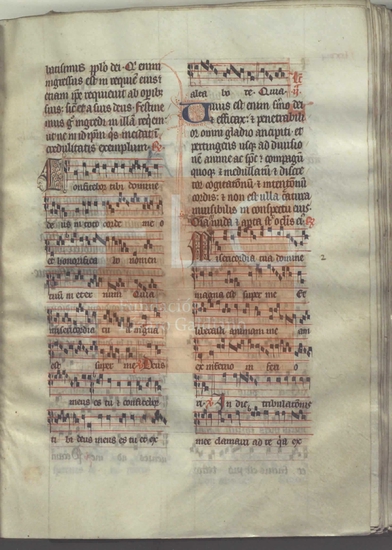 batismus pplo dei. Qi enim
ingressus est in requiē eius:
etiam ipe requieuit ab opib
suis: sic et a suis deus. Festine
mus g ingredi in illā requiem
ut ne in id ipm qs incidat in
credulitatis exemplum.
Confitebor tibi domine
deus in toto corde meo
et honorificabo nomen
tuum in eternum Quia
misericordia tua magna
est super me Deus
meus es tu et confitebor
tibi deus meus es tu et ex
altabo te. Quia.
Uiuus est enim sermo dei
et efficax: et penetrabilior
omni gladio ancipiti: et
pertingens usq ad diuisio
nem anime ac sps: et compagū
quoq et medullarū et discre
tor cogitationū et intentionū
cordis: et non est ulla creatura
inuisibilis in conspectu eius
Misericordia tua domine
magna est super me Et
liberasti animam meam
ex inferno inferio
ri. In die tribulationis
mee clamaui ad te qia ex
2